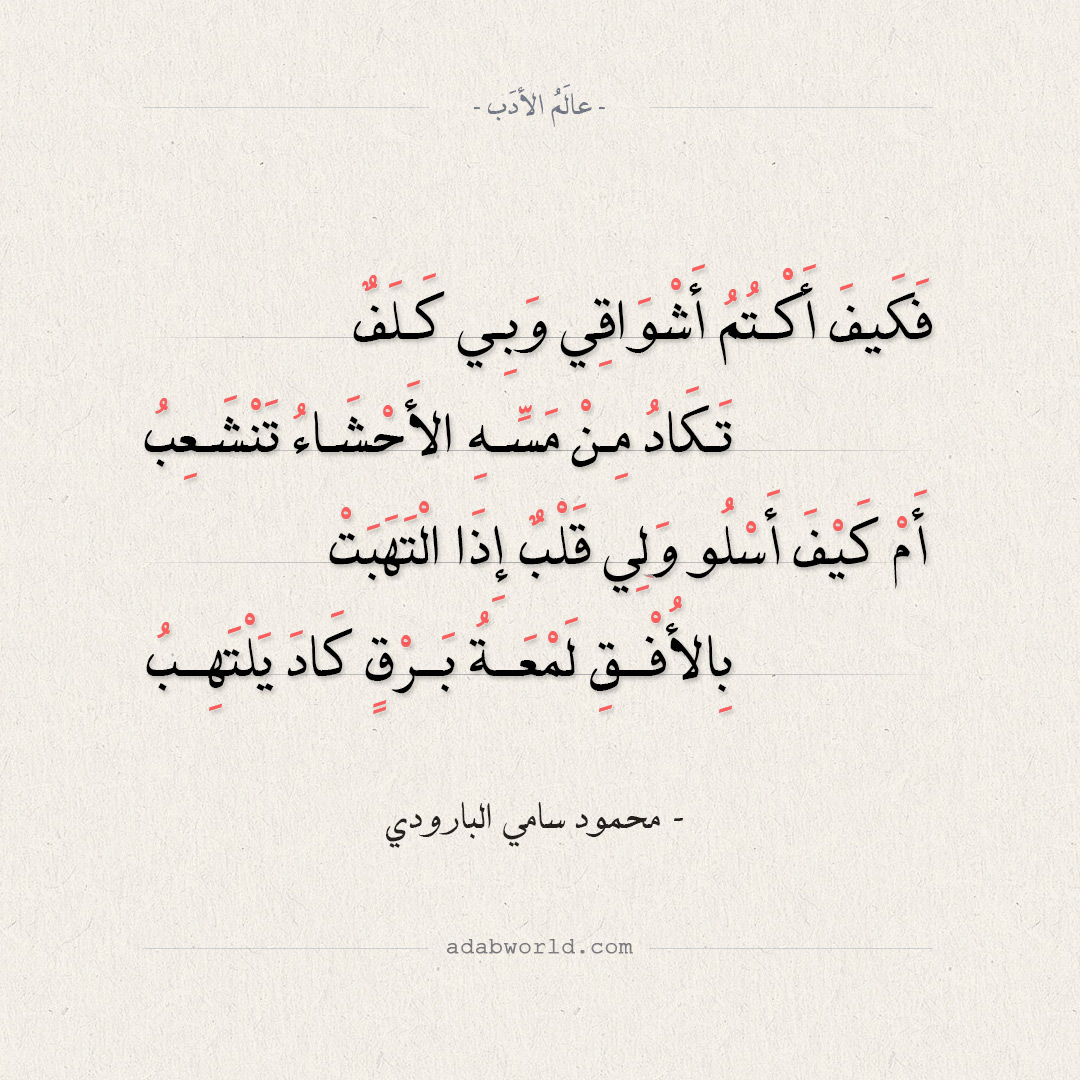 - عالَمُ الأدَب -
فَكَيفَ أَكْـتُمُ أَشْـوَاقِي وَبِـي كَـلَفٌ
تَـكَادُ مِـنْ مَسِّـهِ الأَحْشَـاءُ تَنْشَـعِبُ
أَمْ كَيْفَ أَسْلُو وَلِي قَلْبٌ إِذَا الْتَهَبَتْ
بِالأُفْـقِ لَمْعَـةُ بَـرْقٍ كَادَ يَلْتَهِـبُ
- محمود سامي البارودي
adabworld.com